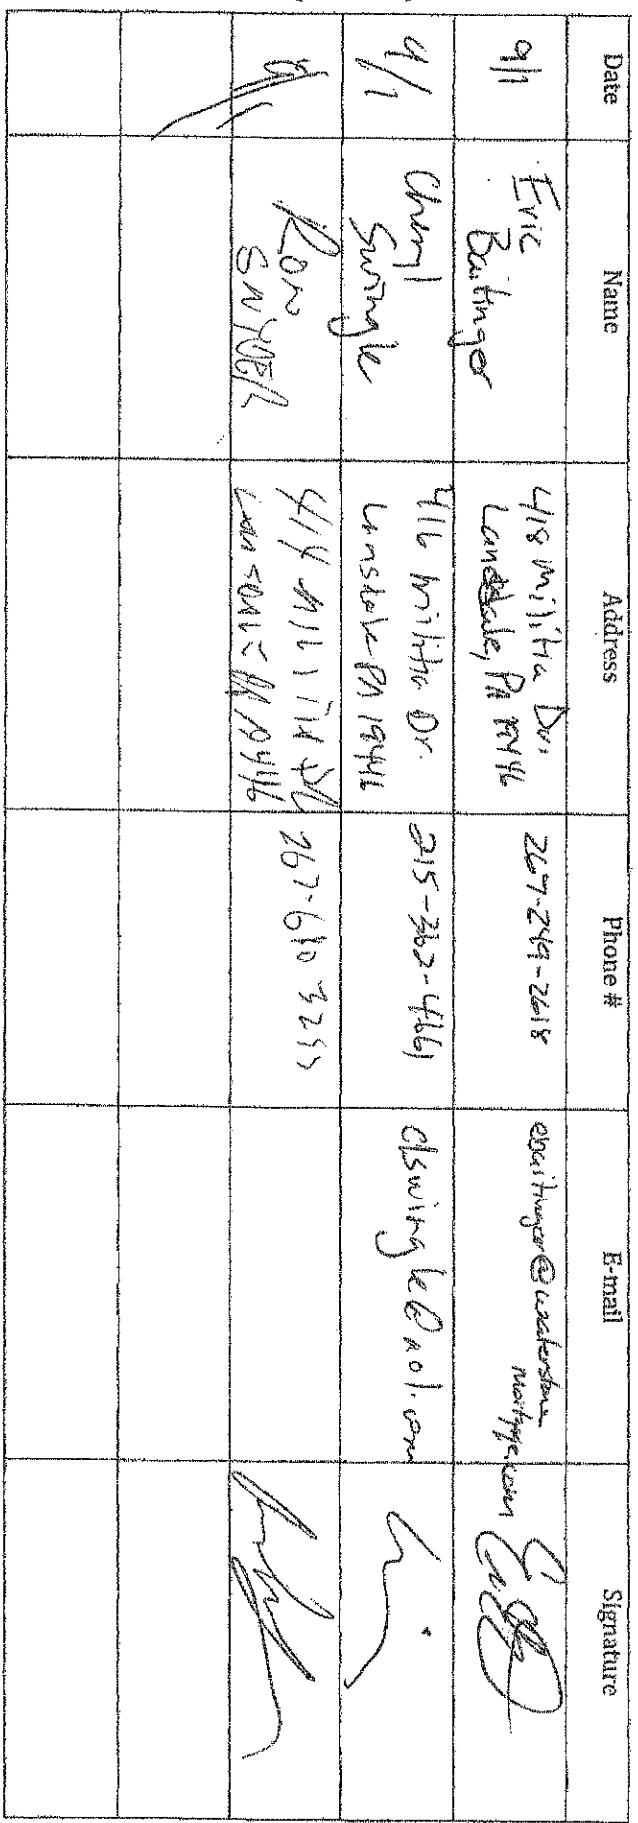 Date Name Address Phone # E-mail Signature
9/1 Eric Baitinger 418 Militia Dr. Lansdale, PA 19446 267-249-2618 ebaitinger@waterstone mortgage.com
9/1 Cheryl Swingle 416 Militia Dr. Lansdale PA 19446 215-362-4661 clswingle@aol.com
Ron SNYDER 414 MILITIA Lansdale PA 19446